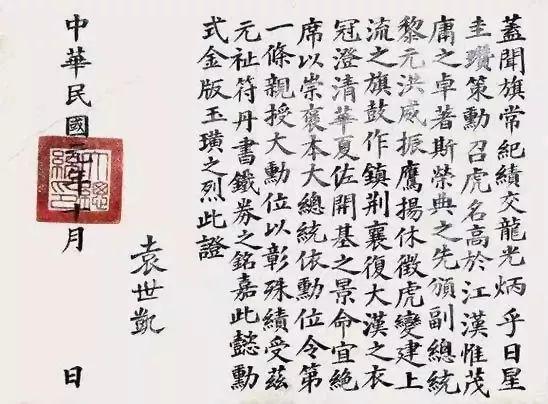 蓋聞旗常紀績交龍光炳乎日星
圭瓚策勳召虎名高於江漢惟茂
庸之卓著斯榮典之先頒副總統
黎元洪威振鷹揚休徵虎變建上
流之旗鼓作鎮荆襄復大漢之衣
冠澄清華夏佐開基之景命宜絕
席以崇襃本大總統依勳位令第
一條親授大勳位以彰殊績受茲
元祉符丹書鐵券之銘嘉此懿勳
式金版玉璜之烈此證
袁世凱
中華民國年十月 日